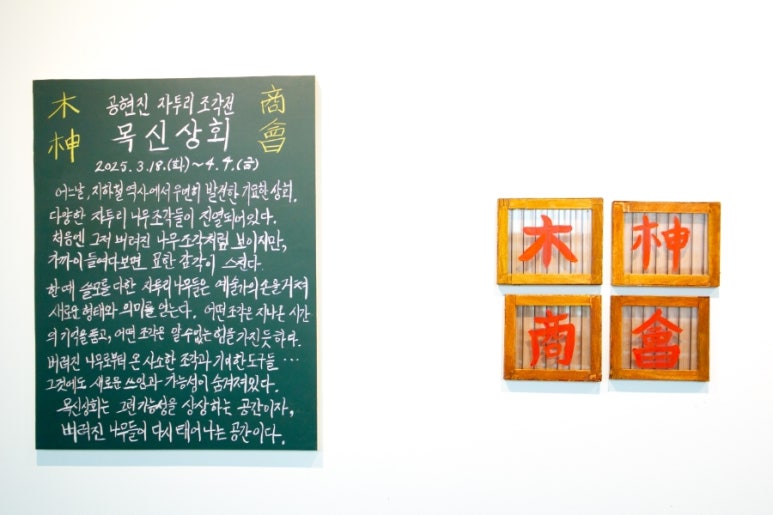 木 공현진 자투리 조각전 商
柛 목신상회 會
2025.3.18.(화)~4.4.(금)
어느날, 지하철 역사에서 우연히 발견한 기묘한 상회.
다양한 자투리 나무조각들이 진열되어있다.
처음엔 그저 버려진 나무조각처럼 보이지만,
가까이 들여다보면 묘한 감각이 스친다.
한 때 쓸모를 다한 자투리 나무들은 예술가의 손을 거쳐
새로운 형태와 의미를 얻는다. 어떤 조각은 지나온 시간
의 기억을 품고, 어떤 조각은 알 수 없는 힘을 가진 듯하다.
버려진 나무로부터 온 사소한 조각과 기이한 도구들 …
그것에도 새로운 쓰임과 가능성이 숨겨져있다.
목신상회는 그런 가능성을 상상하는 공간이자,
버려진 나무들이 다시 태어나는 공간이다.
木 柛
商 會